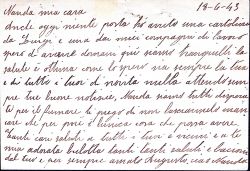 18-4-43
Nanda mia cara
Anche oggi niente posta. Ho avuto una cartolina
da Luigi e una dai miei compagni di lavoro
spero di avere domani qui siamo tranquilli la
salute è ottima come lo spero sia sempre la tua
e di tutti i tuoi di novità nulla attendo sem
pre tue buone notizie, Nanda siamo tutti
ti per il fumare ti prego di non lasciarmelo man
care che per me è l'unica cosa che possa avere
Tanti cari saluti a tutti i tuoi e vicini e a te
mia adorata tanti tanti saluti e bacioni
dal tuo e sempre amato Augusto, ciao Nanda